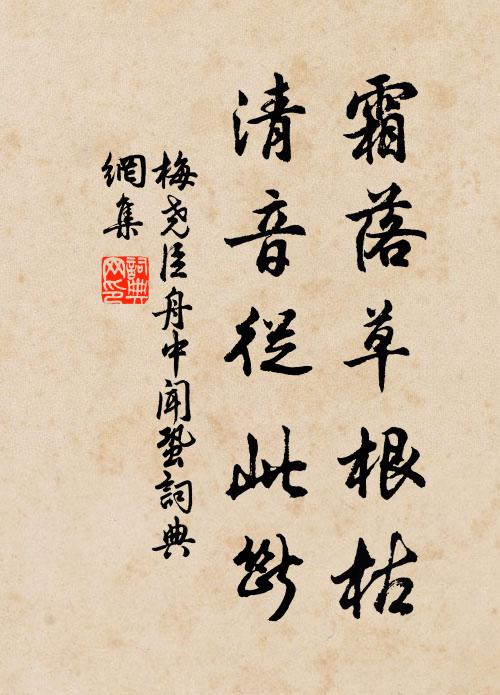 霜落草根枯
清音從此斷
梅尧臣舟中闻蛩詞典
網集
詞典
网印